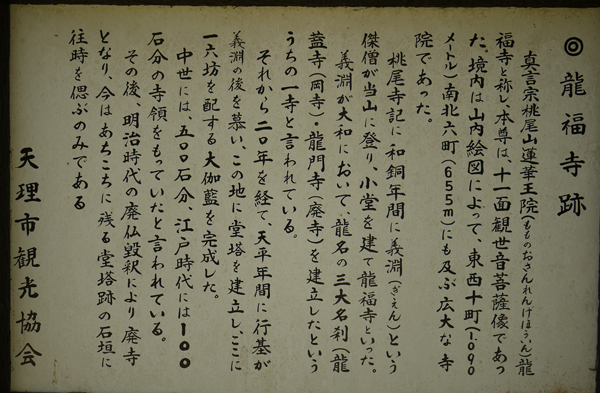 ◎ 龍福寺跡
真言宗桃尾山蓮華王院(もものおさんれんげほういん)龍
福寺と称し、本尊は、十一面観世音菩薩像であっ
た。境内は山内絵図によって、東西十町(1.090
メートル)南北六町(655m)にも及ぶ広大な寺
院であった。
桃尾寺記に和銅年間に義淵(ぎえん)という
傑僧が当山に登り、小堂を建て龍福寺といった。
義淵が大和において、龍名の三大名刹(龍
蓋寺(岡寺)・龍門寺(廃寺)を建立したという
うちの一寺と言われている。
それから二〇年を経て、天平年間に行基が
義淵の後を慕い、この地に堂塔を建立し、ここに
一六坊を配する大伽藍を完成した。
中世には、五〇〇石分、江戸時代には一〇〇
石分の寺領をもっていたと言われている。
その後、明治時代の廃仏毀釈により廃寺
となり、今はあちこちに残る堂塔跡の石垣に
往時を偲ぶのみである
天理市観光協会